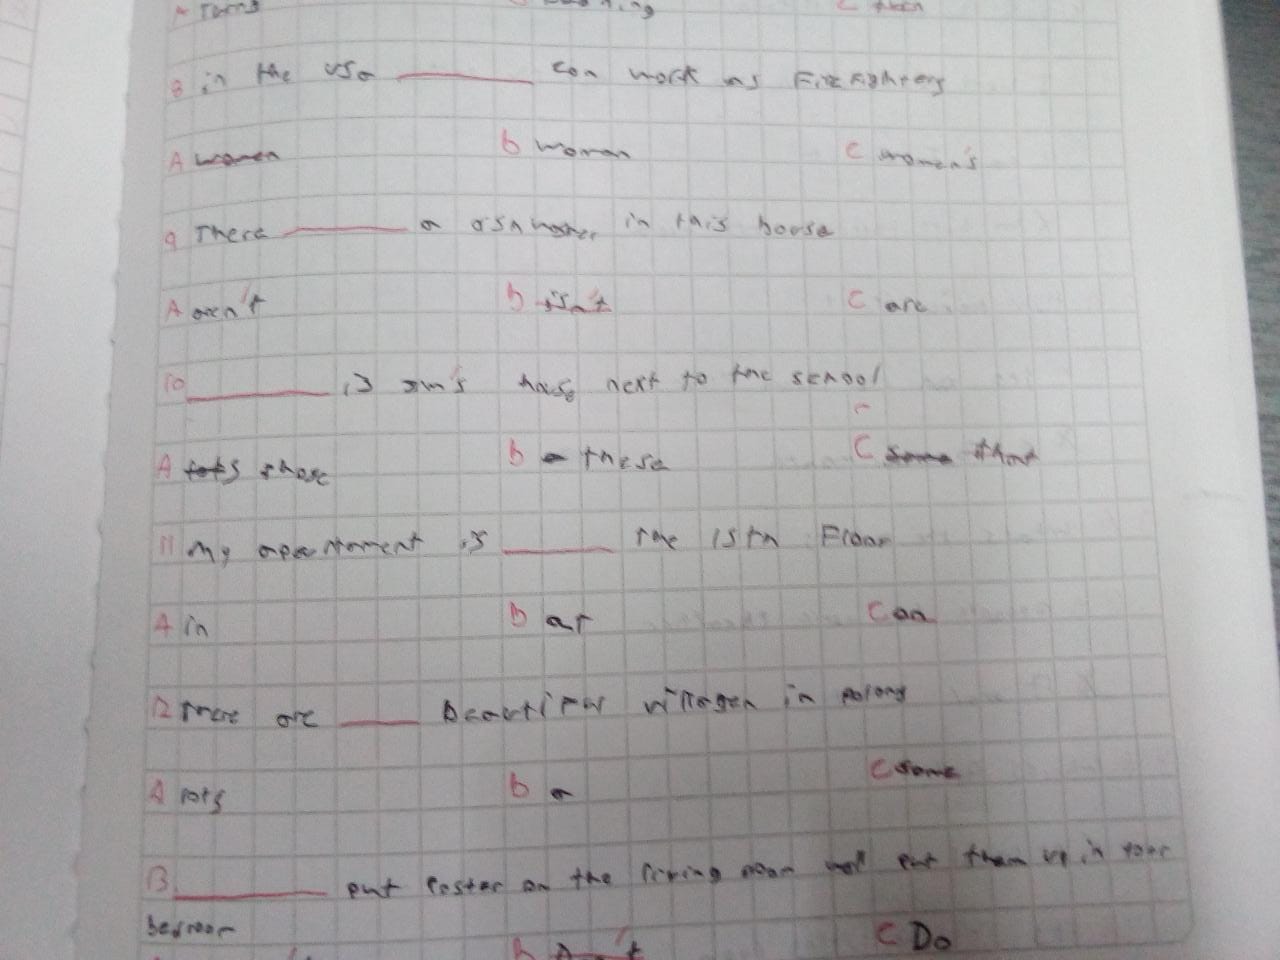 8 in the USA ______ can work as Firefighters
A women b woman C women's
9 There ______ a in this house
A aren't b isn't C are
10 ______ is house next to the school
A those b these C that
11 My apartament is ______ the 15th Floor
A in b at C on
12 There are ______ beautiful in poland
A lots b a C some
13 ______ put Poster on the living room wall put them up in your
bedroom
C Do